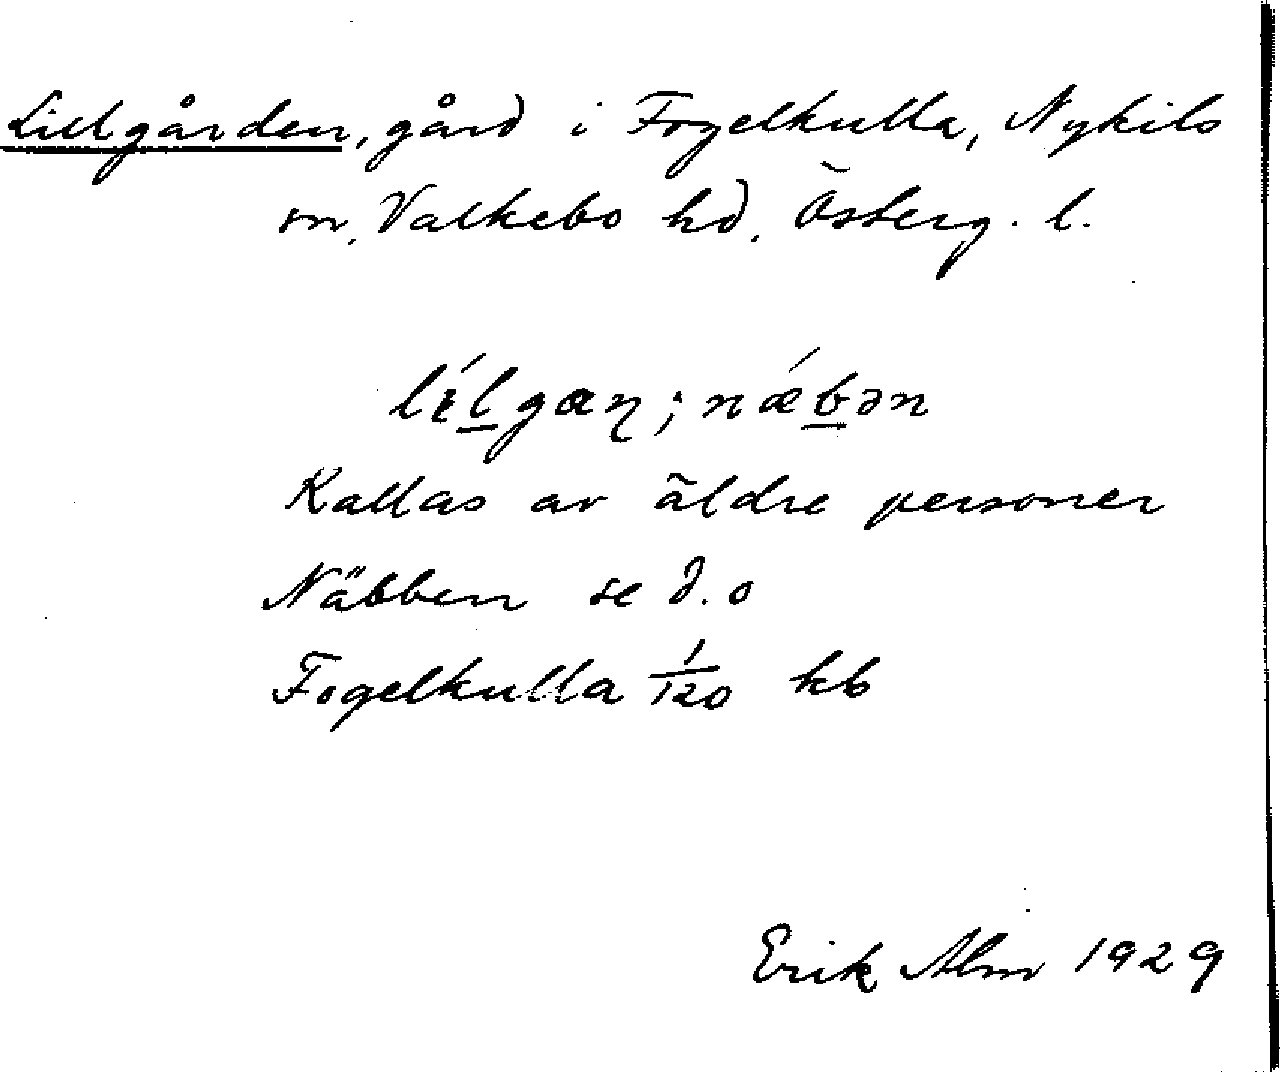 Lillgården, gård i Fogelkulla, Nykils
sn, Valkebo hd. Österg. l.
lílgaɳ; nǽbən
Kallas av äldre personer
Näbben se d. o
Fogelkulla 1/120 kb
Erik Alm 1929